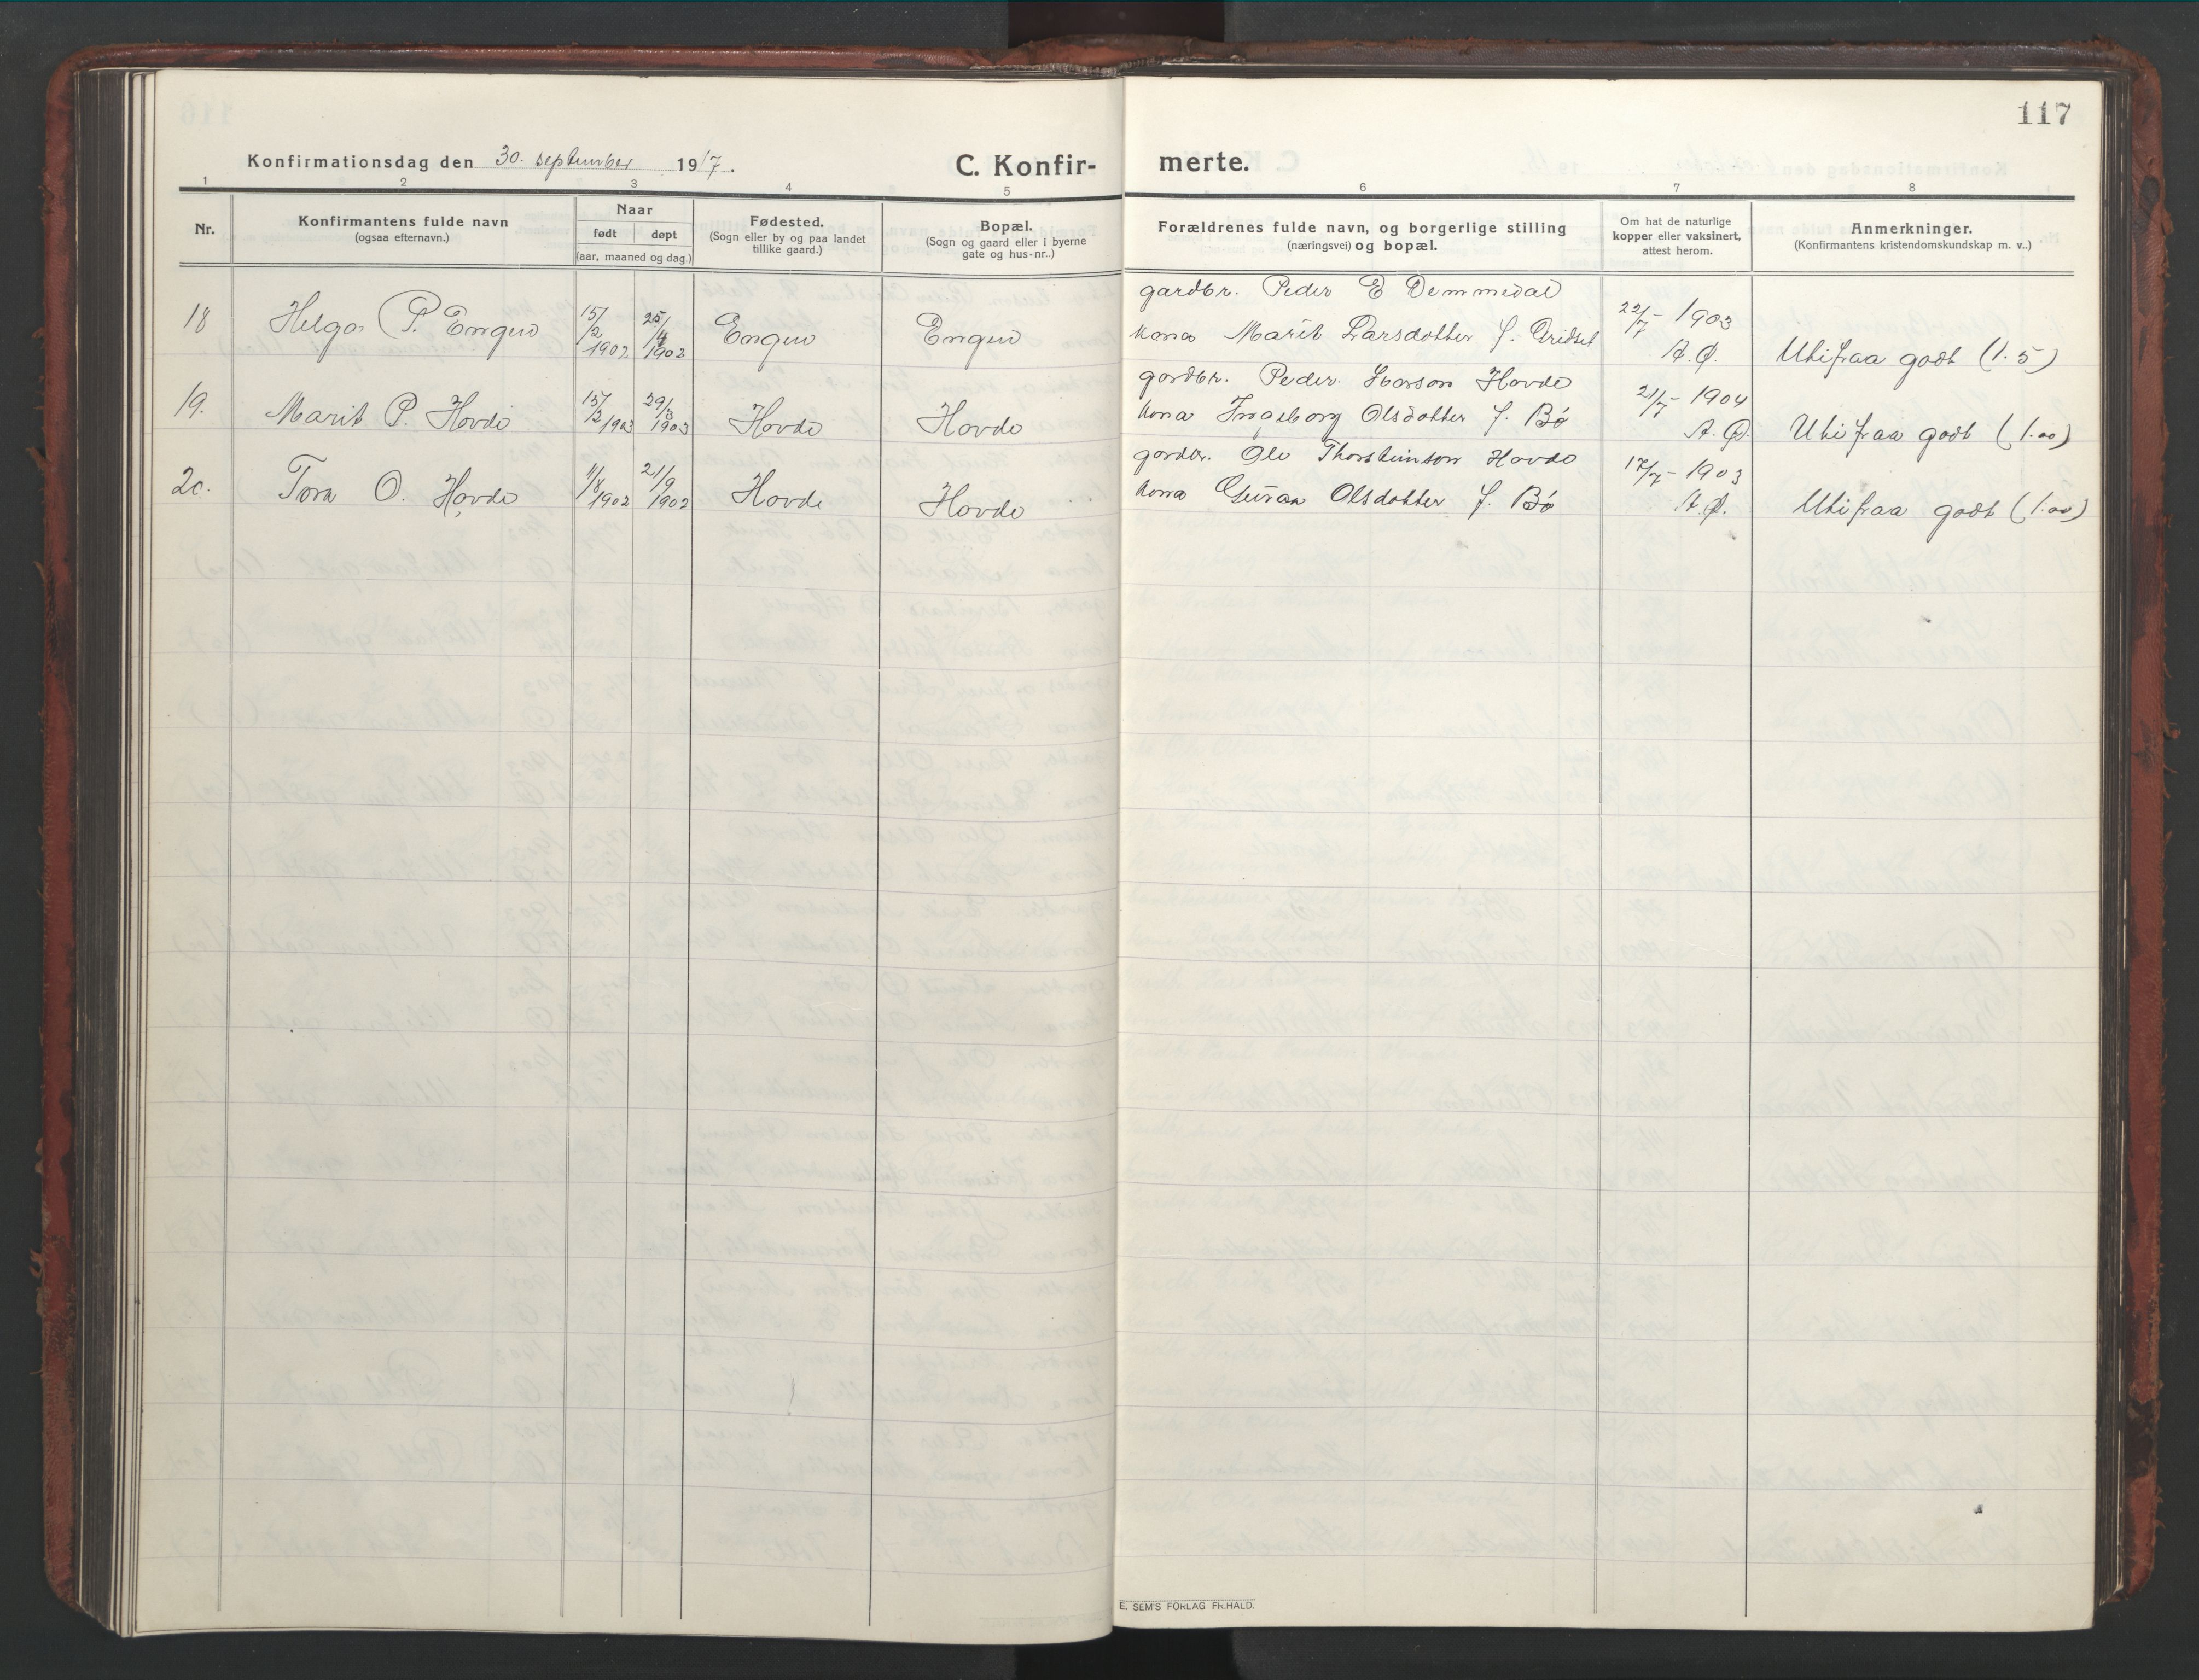 117
Konfirmationsdag den 30. september 1917.
C. Konfir- merte.
1 2 3 4 5 6 7 8
Nr.
Konfirmantens fulde navn
(ogsaa efternavn.)
Naar
født døpt
(aar, maaned og dag.)
Fødested.
(Sogn eller by og paa landet
tillike gaard.)
Bopæl.
(Sogn og gaard eller i byerne
gate og hus-nr..)
Forældrenes fulde navn, og borgerlige stilling
(næringsvei) og bopæl.
Om hat de naturlige
kopper eller vaksinert,
attest herom.
Anmerkninger.
(Konfirmantens kristendomskundskap m. v..)
gardbr. Peder E Demmedal
18 Helga P. Engen 15/2 1902 25/4 1902 Engen Engen kona Marit Larsdotter f. 22/7 - 1903 Utifraa godt (1.5)
gardbr. Peder Hovde
19. Marit P. Hovde 15/2 1903 29/3 1903 Hovde Hovde kona Ingeborg Olsdotter f. Bø 21/7 - 1904 Utifraa godt (1.00)
gardbr. Ole Thorsteinson Hovde
20. Tora O. Hovde 11/8 1902 21/9 1902 Hovde Hovde kona Guran Olsdotter f. Bø 17/7 - 1903 Utifraa godt (1.00)
E. SEM'S FORLAG FR.HALD.